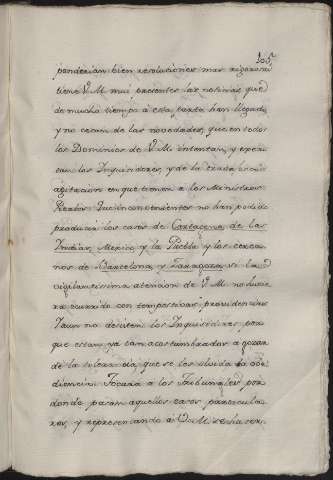 105
ponderian bien resoluciones mas rigorosas
tiene V.M. mui presentes las noticias que
de mucho tiempo a esta parte han llegado
y no cesan de las novedades, que en todos
los Dominios de V.M. intentan, y
los Inquisidores, y de la
agitacion en que tienen a los Ministros
Reales. Que inconvenientes no han podido
producir los casos de Cartagena de las
Indias, Mexico y la Puebla y los cerca
nos de Barcelona y Zaragoza si la
vigilantissima atencion de V.M. no huvie
ra ocurrido con tempestivas providencias
Y aun no desisten los Inquisidores por
que estan ya tan acostumbrados a gozar
de la tolerancia, que se les olvida la obe
diencia. Tocará a los Tribunales por
donde pasan aquellos casos particula
res, y representando a V.M.